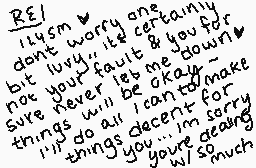 RE1
ily sm ♥
dont worry one
bit luvy,, its certainly
not your fault & you for
sure never let me down ♥
things will be okay ~
i'll do all i can to make
things decent for
you... im sorry
youre dealing
w/ so much